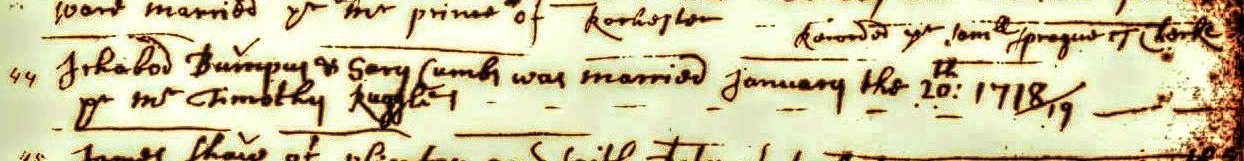 ware married pr mr prince of Rochester
Recorded pr Samll Sprague T Clerke
44 Ichabod Bumpus & Sary Cumbs was married January the 20th: 1718/19
pr Mr Timothy Ruggles
45 James Shaw of